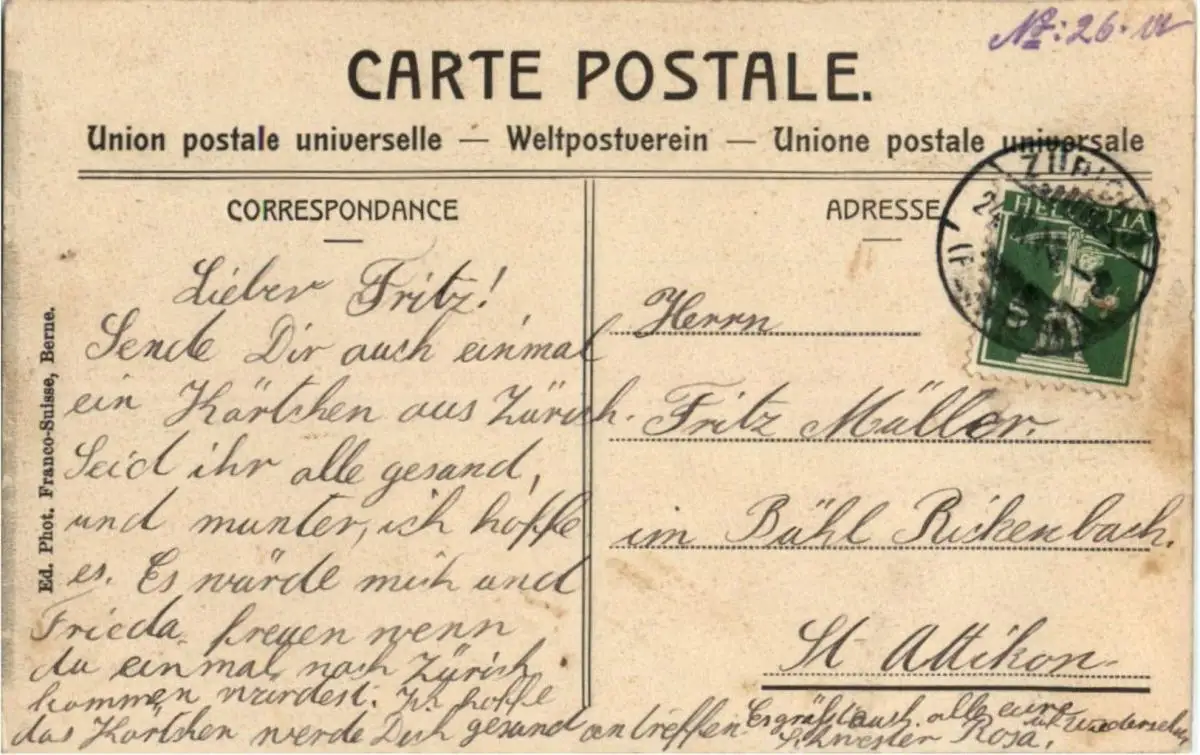 No: 26.
CARTE POSTALE.
Union postale universelle — Weltpostverein — Unione postale universale
CORRESPONDANCE
ADRESSE
HELVETIA
Ed. Phot. Franco-Suisse, Berne.
Lieber Fritz!
Sende Dir auch einmal
ein Kärtchen aus Zürich.
Seid ihr alle gesund,
und munter, ich hoffe
es. Es würde mich und
Frieda freuen wenn
du einmal nach Zürich
kommen würdest. Ich hoffe
das Kärtchen werde Dich gesund antreffen
Es grüßt euch alle eure
Schwester Rosa.
Herrn
Fritz Müller.
im Bühl Rickenbach.
St Attikon.